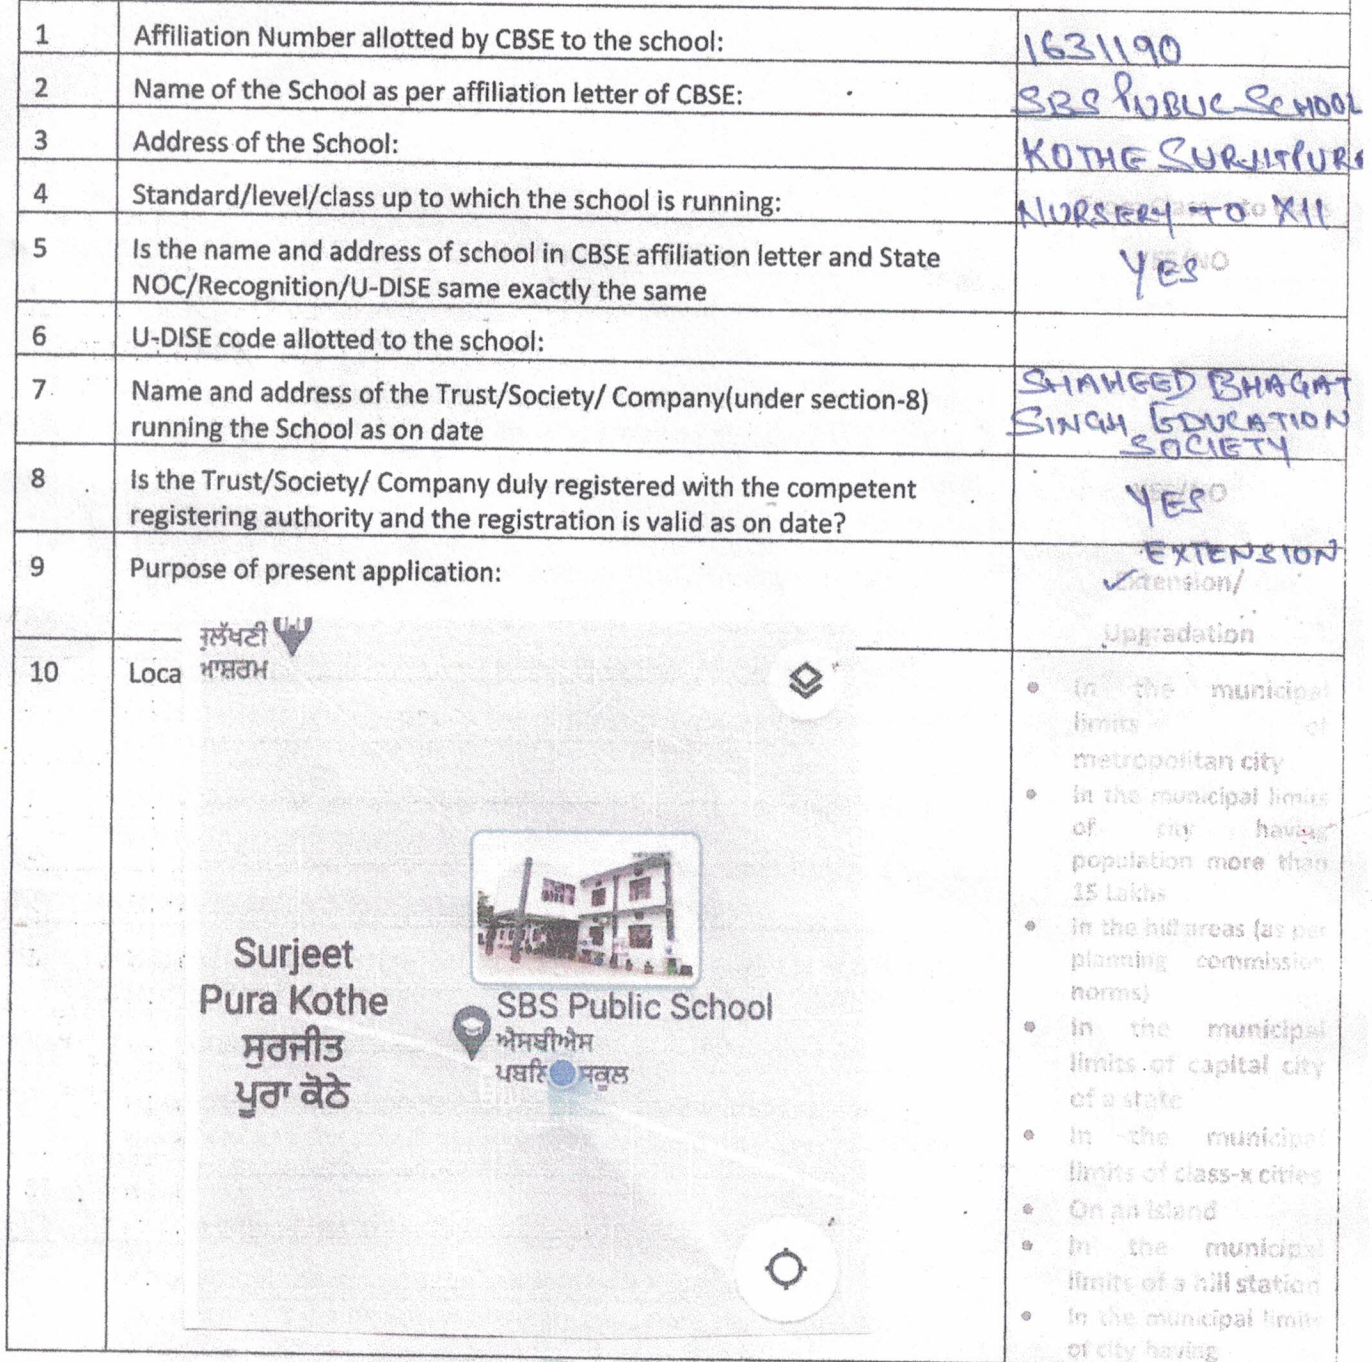 1 Affiliation Number allotted by CBSE to the school: 1631190
2 Name of the School as per affiliation letter of CBSE: SBS PUBLIC SCHOOL
3 Address of the School: KOTHE SURJITPURA
4 Standard/level/class up to which the school is running: NURSERY TO XII
5 Is the name and address of school in CBSE affiliation letter and State YES
NOC/Recognition/U-DISE same exactly the same
6 U-DISE code allotted to the school:
7 Name and address of the Trust/Society/ Company(under section-8) SHAHEED BHAGAT
running the School as on date SINGH EDUCATION
SOCIETY
8 Is the Trust/Society/ Company duly registered with the competent YES
registering authority and the registration is valid as on date?
EXTENSION
9 Purpose of present application: Extension/
Upgradation
10 Loca
ਸੁਲੱਖਣੀ
ਆਸ਼ਰਮ
Surjeet
Pura Kothe
ਸੁਰਜੀਤ
ਪੂਰਾ ਕੋਠੇ
SBS Public School
ਐਸਬੀਐਸ
ਸਕੂਲ
In the municipal
limits of
metropolitan city
In the municipal limits
of city having
population more than
15 Lakhs
In the hill areas (as per
planning commission
norms)
In the municipal
limits of capital city
of a state
In the municipal
limits of class-x cities
On an island
In the municipal
limits of a hill station
In the municipal limits
of city having